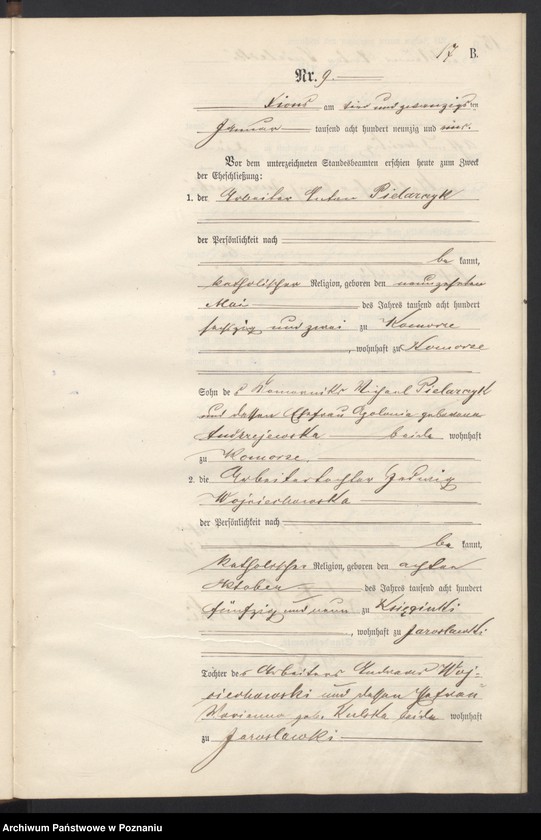 17 B.
Nr. 9.
Xions am vier und zwanzigsten
Januar tausend acht hundert neunzig und
Vor dem unterzeichneten Standesbeamten erschien heute zum Zweck
der Eheschließung:
1. der Arbeiter Anton Pielarczyk
der Persönlichkeit nach
be kannt,
katholischer Religion, geboren den neunzehnten
Mai des Jahres tausend acht hundert
sechzig und zwei zu Komorze
, wohnhaft zu Komorze
Sohn des Komorniks Michael Pielarczyk
und dessen Ehefrau Apolonia geborene
Andrzejewska beide wohnhaft
zu Komorze.
2. die Arbeitertochter Hedwig
Wojciechowska
der Persönlichkeit nach
be kannt,
katholischer Religion, geboren den achten
Oktober des Jahres tausend acht hundert
fünfzig und neun zu Księginki
, wohnhaft zu Jaroslawki
Tochter des Arbeiters Andreas Woj-
ciechowski und dessen Ehefrau
Marianna geb. Kulska beide wohnhaft
zu Jaroslawki
Archiwum Państwowe w Poznaniu